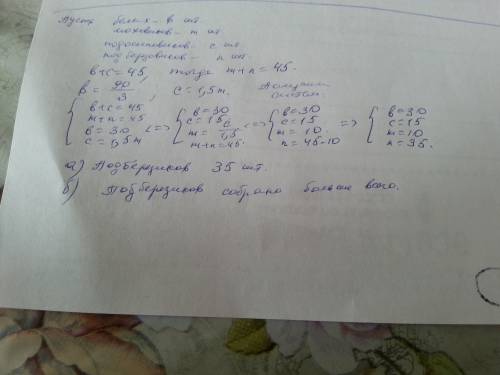 Пусть белых – в шт.
моховиков – m шт
подосиновиков – с шт.
подберёзовиков – n шт
в+с = 45, тогда m+n = 45.
в = 90/3, с = 1,5m. Получим систему:
{ в+с = 45 m+n = 45 в = 30 с = 1,5m <=> { в = 30 с = 15 m = с/1,5 m+n = 45. <=> { в = 30 с = 15 m = 10 n = 45-10 => { в = 30 с = 15 m = 10 n = 35.
а) Подберезиков 35 шт.
б) Подберезиков собрано больше всего.